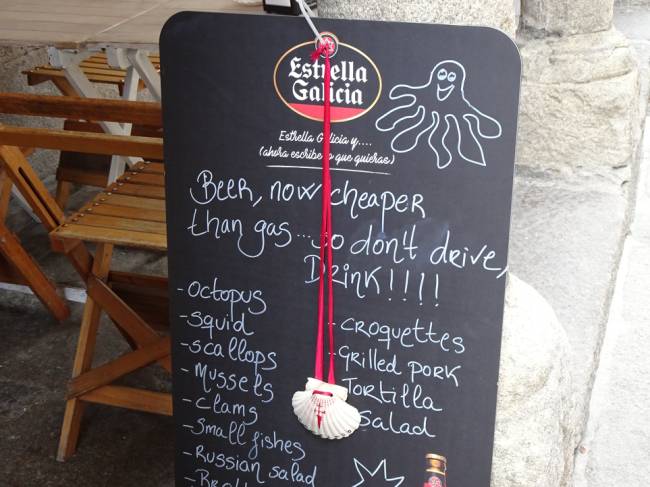 Estrella
Galicia
Estrella Galicia y....
(ahora escribe lo que quieras.)
Beer, now cheaper
than gas...so don't drive,
DRINK!!!!
-octopus
-squid
-scallops
-Mussels
-clams
-small fishes
-Russian salad
-croquettes
-Grilled pork
Tortilla
Salad